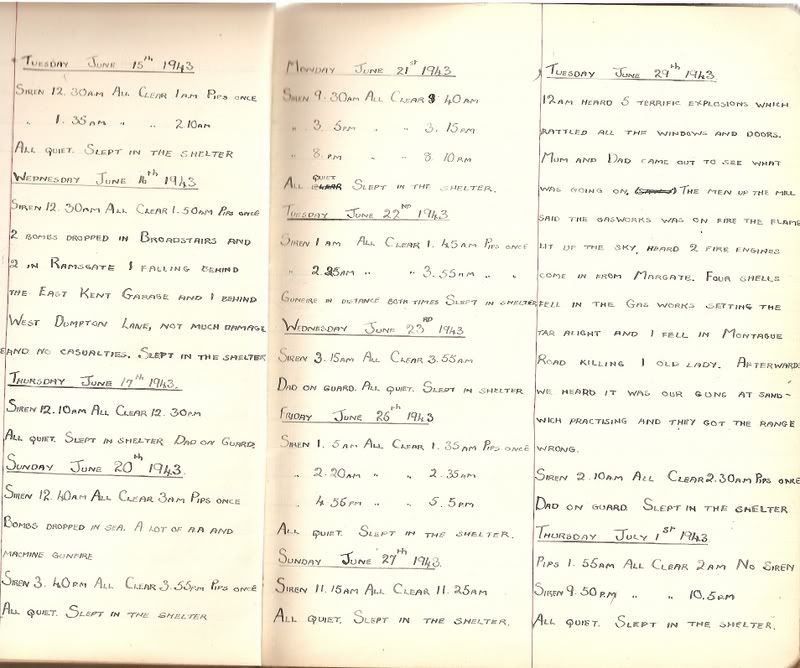 Tuesday June 15th 1943
Siren 12.30am All Clear 1am Pips once
" 1.35am " " 2.10am
All quiet. Slept in the shelter
Wednesday June 16th 1943
Siren 12.30am All Clear 1.50am Pips once
2 bombs dropped in Broadstairs and
2 in Ramsgate 1 falling behind
the East Kent Garage and 1 behind
West Dumpton Lane, not much damage
and no casualties. Slept in the shelter
Thursday June 17th 1943.
Siren 12.10am All Clear 12.30pm
All quiet. Slept in shelter Dad on Guard.
Sunday June 20th 1943.
Siren 12.40am All Clear 3am Pips once
Bombs dropped in sea. A lot of AA and
machine gunfire
Siren 3.40pm All Clear 3.55pm Pips once
All quiet. Slept in the shelter
Monday June 21st 1943
Siren 9.30am All Clear 9 40am
" 3.5pm " " 3.15pm
" 8.pm " " 8.10pm
All quiet Slept in the shelter.
Tuesday June 22nd 1943
Siren 1am All Clear 1.45am Pips once
" 2.25am " " 3.55am " "
Gunfire in distance both times Slept in shelter
Wednesday June 23rd 1943
Siren 3.15am All Clear 3.55am
Dad on guard. All quiet. Slept in shelter
Friday June 26th 1943
Siren 1.5am All Clear 1.35am Pips once
" 2.20am " " 2.35am
" 4.56pm " " 5.5pm
All quiet. Slept in the shelter.
Sunday June 27th 1943.
Siren 11.15am All Clear 11.25am
All quiet. Slept in the shelter.
Tuesday June 29th 1943
12am heard 5 terrific explosions which
rattled all the windows and doors.
Mum and Dad came out to see what
was going on. The men up the mill
said the gasworks was on fire the flame
lit up the sky, heard 2 fire engines
come in from Margate. Four shells
fell in the Gas works setting the
tar alight and 1 fell in Montague
Road killing 1 old lady. Afterwards
we heard it was our guns at Sand-
wich practising and they got the range
wrong.
Siren 2.10am All Clear 2.30am Pips once
Dad on guard. Slept in the shelter
Thursday July 1st 1943
Pips 1.55am All Clear 2am No Siren
Siren 9.50pm " " 10.5pm
All quiet. Slept in the shelter.